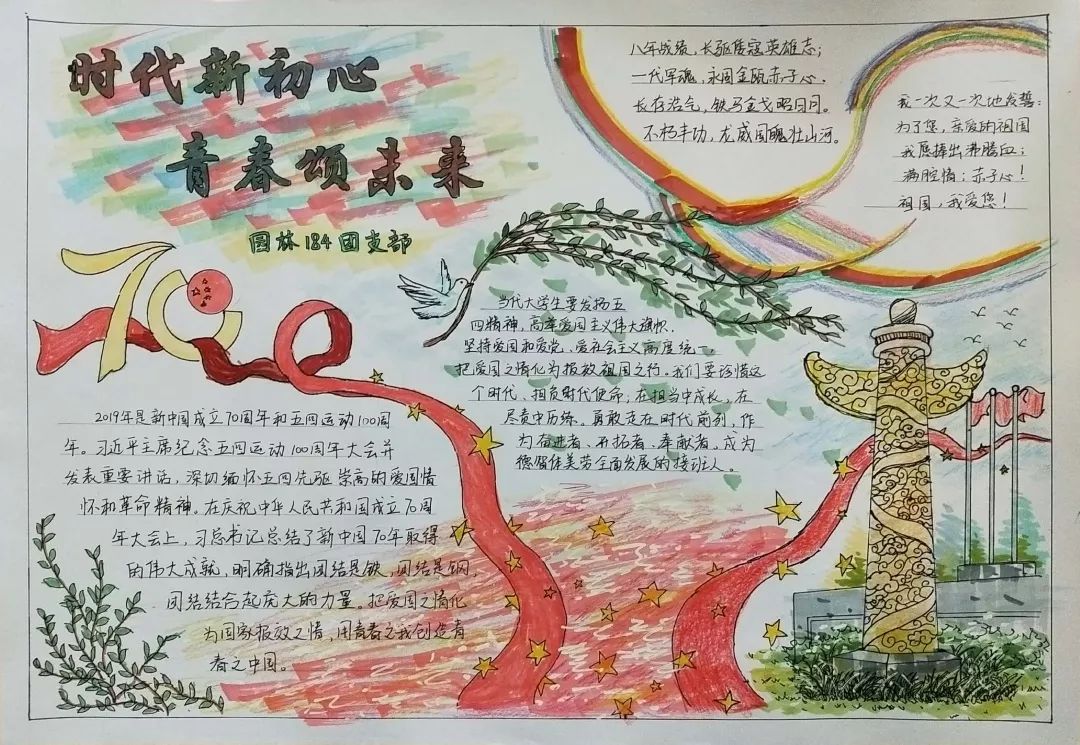 时代新初心
青春颂未来
园林184团支部
70
八年战绩，长驱倭寇英雄志；
一代军魂，永固金瓯赤子心。
长存浩气，铁马金戈昭日月。
不朽丰功，龙威国魂壮山河。
我一次又一次地发誓：
为了您，亲爱的祖国
我愿捧出沸腾血；
满腔情；赤子心！
祖国，我爱您！
当代大学生要发扬五
四精神，高举爱国主义伟大旗帜，
坚持爱国和爱党、爱社会主义高度统一，
把爱国之情化为报效祖国之行。我们要珍惜这
个时代、担负时代使命，在担当中成长，在
尽责中历练。勇敢走在时代前列，作
为奋进者、开拓者、奉献者。成为
德智体美劳全面发展的接班人。
2019年是新中国成立70周年和五四运动100周
年。习近平主席纪念五四运动100周年大会并
发表重要讲话，深切缅怀五四先驱崇高的爱国情
怀和革命精神。在庆祝中华人民共和国成立70周
年大会上，习总书记总结了新中国70年取得
的伟大成就，明确指出团结是铁，团结是钢，
团结结合起庆大的力量。把爱国之情化
为国家报效之情，用青春之我创造青
春之中国。